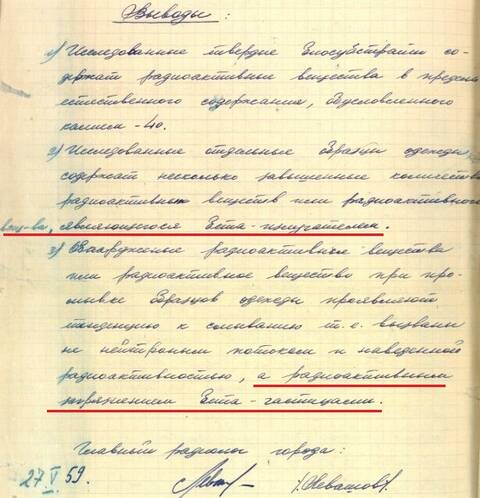 Выводы:
1) Исследованные твердые биосубстраты со-
держат радиоактивные вещества в предела
естественного содержания, обусловленного
калием-40.
2) Исследованные отдельные образцы одежды
содержат несколько завышенные количества
радиоактивных веществ или радиоактивного
вещ-ва, являющегося бета-излучателем.
3) Обнаруженные радиоактивные вещества
или радиоактивное вещество при про-
мывке образцов одежды проявляют
тенденцию к смыванию т.е. вызваны
не нейтронным потоком и наведенной
радиоактивностью, а радиоактивным
загрязнением бета-частицами.
Главный радиолог города:
27 V 59.
/Левашов/.